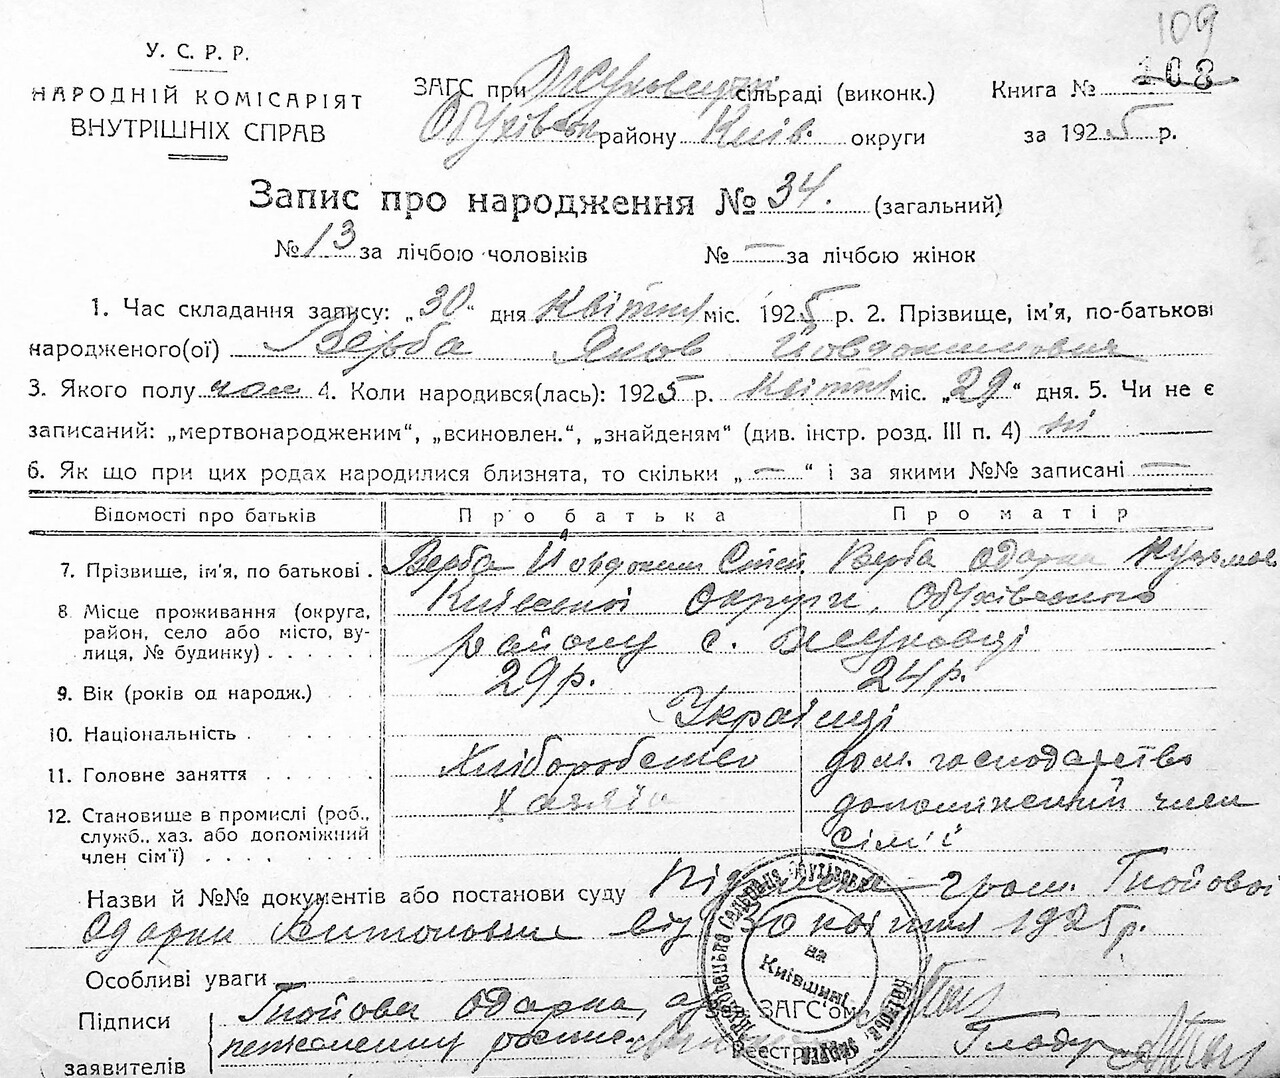 109
У. С. Р. Р.
108
НАРОДНІЙ КОМІСАРІЯТ
ВНУТРІШНІХ СПРАВ
ЗАГС при Жуковецькій сільраді (виконк.) Книга №
Обухівськ району Київ. округи за 1925 р.
Запис про народження № 34. (загальний)
№ 13 за лічбою чоловіків № — за лічбою жінок
1. Час складання запису: „30“ дня Квітня міс. 1925 р. 2. Прізвище, ім'я, по-батькові
народженого(ої) Верба Яков Йовдокимович
3. Якого полу чол 4. Коли народився(лась): 1925 р. Квітня міс. „29“ дня. 5. Чи не є
записаний: „мертвонародженим“, „всиновлен.“, „знайденям“ (див. інстр. розд. III п. 4) ні
6. Як що при цих родах народилися близнята, то скільки „—“ і за якими №№ записані —
Відомості про батьків Про батька Про матір
7. Прізвище, ім'я, по батькові . Верба Йовдоким Верба Одарка Кузьмов
8 Місце проживання (округа, район, село або місто, вулиця, № будинку) . . . . . Київської Округи, Обухівського
району с. Жуковці
9. Вік (років од народж.) . . 29р. 24р.
10. Національність . . . . . Українці
11. Головне заняття . . . . . Хліборобство дом. господарство
12. Становище в промислі (роб., Хазяїн допоміжний член
служб., хаз. або допоміжний сім'ї
член сім'ї) . . . .
Назви й №№ документів або постанови суду гром. Гнойової
Одарки від 30 квітня 1925р.
Особливі уваги
Підписи Гнойова Одарка,
ЗАГС'ом
заявителів
на
Київшині